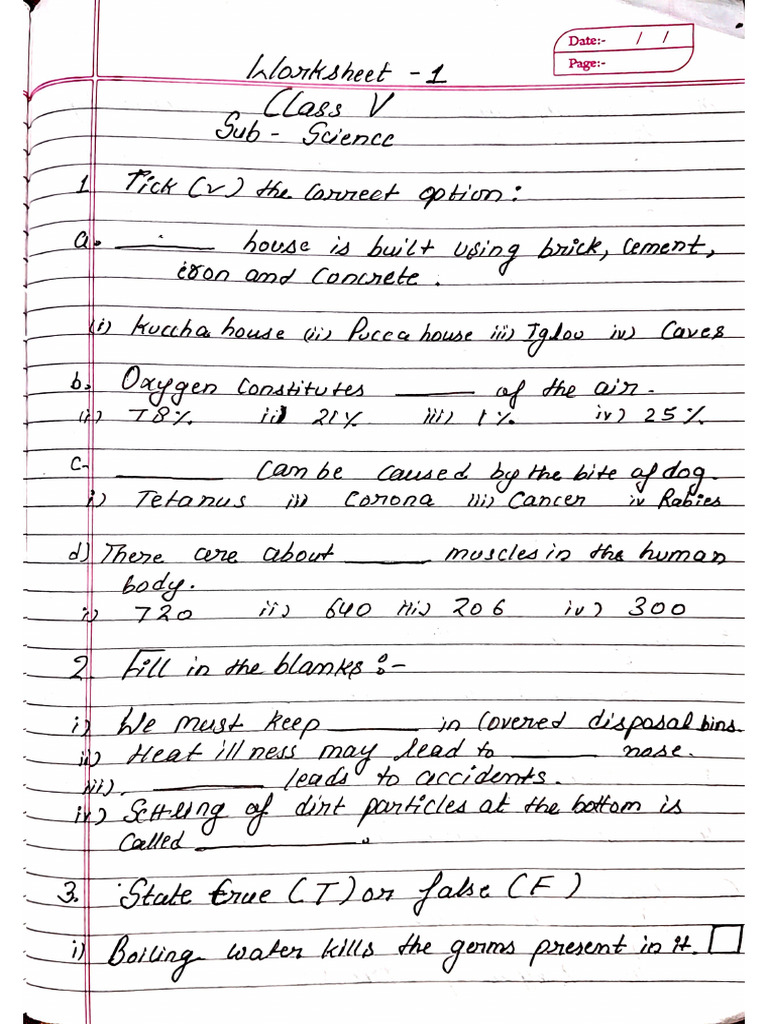 Date:- / /
Page:-
Worksheet - 1
Class V
Sub - Science
1 Tick (✓) the correct option :
a. ______ house is built using brick, cement,
iron and concrete.
(i) Kuccha house (ii) Pucca house iii) Igloo iv) Caves
b. Oxygen constitutes ______ of the air.
(i) 78% ii) 21% iii) 1% iv) 25%
c- ______ can be caused by the bite of dog.
i) Tetanus ii) Corona iii) Cancer iv Rabies
d) There are about ______ muscles in the human
body.
i) 720 ii) 640 iii) 206 iv) 300
2. Fill in the blanks :-
i) We must keep ______ in covered disposal bins.
ii) Heat illness may lead to ______ nose.
iii). ______ leads to accidents.
iv) Settling of dirt particles at the bottom is
called ______.
3. State true (T) or false (F)
i) Boiling water kills the germs present in it.